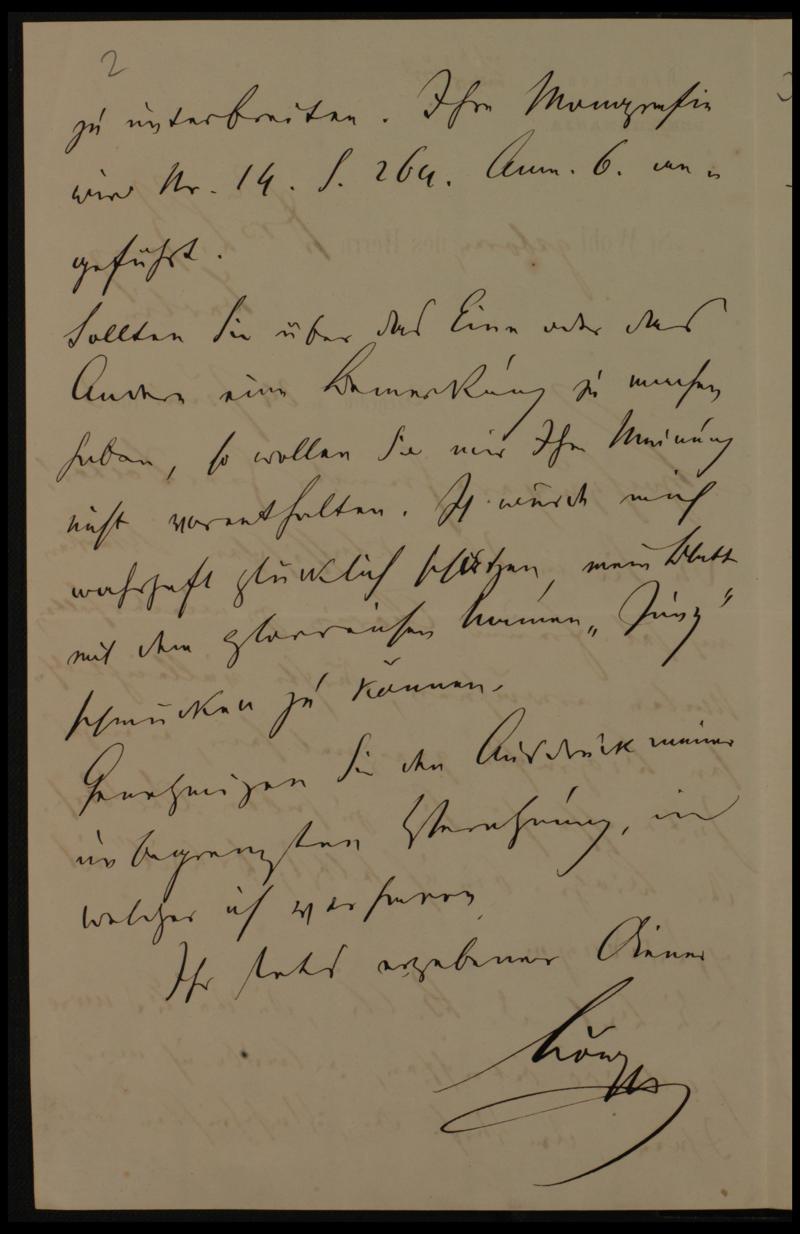 2
zu unterbreiten. Ihre Monografie
wird Nr. 14. S. 264. Anm. 6. an-
geführt.
Sollten Sie über das Eine oder das
Andere eine Bemerkung zu machen
haben, so wollen Sie mir Ihre Meinung
nicht vorenthalten. Ich würde mich
wahrhaft glücklich schätzen, mein Blatt
mit dem glorreichen Namen „Jung"
schmücken zu können.
Genehmigen Sie den Ausdruck meiner
unbegrenzten Verehrung, in
welcher ich verharre
Ihr stets ergebener Diener